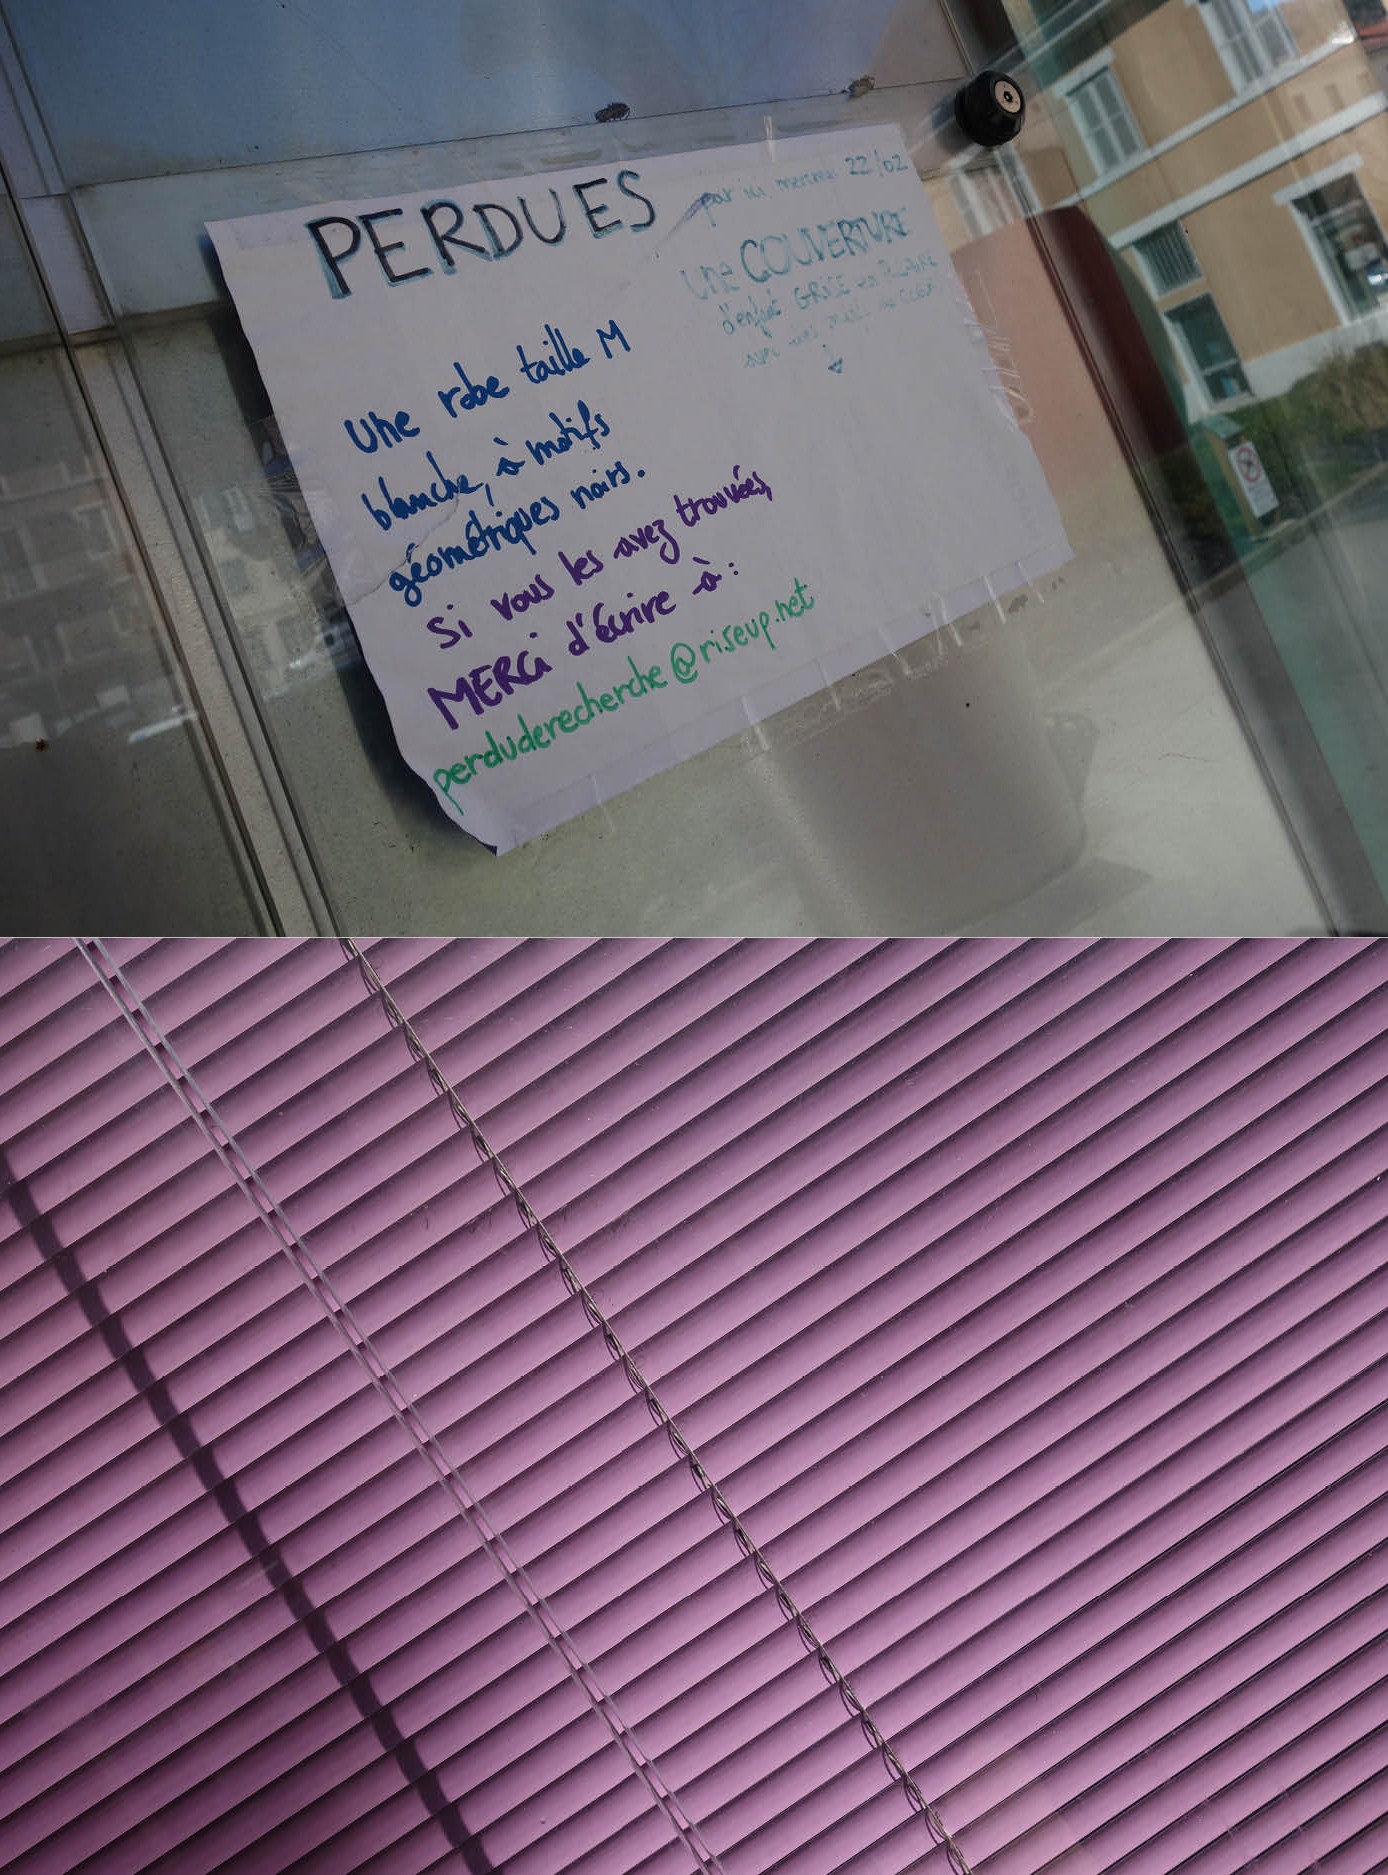 PERDUES
par ici mercredi 22/02
une COUVERTURE
d'enfant GRISE en POLAIRE
avec des motifs
Une robe taille M
blanche, à motifs
géométriques noirs.
Si vous les avez trouvées,
MERCi d'écrire à :
perduderecherche@riseup.net